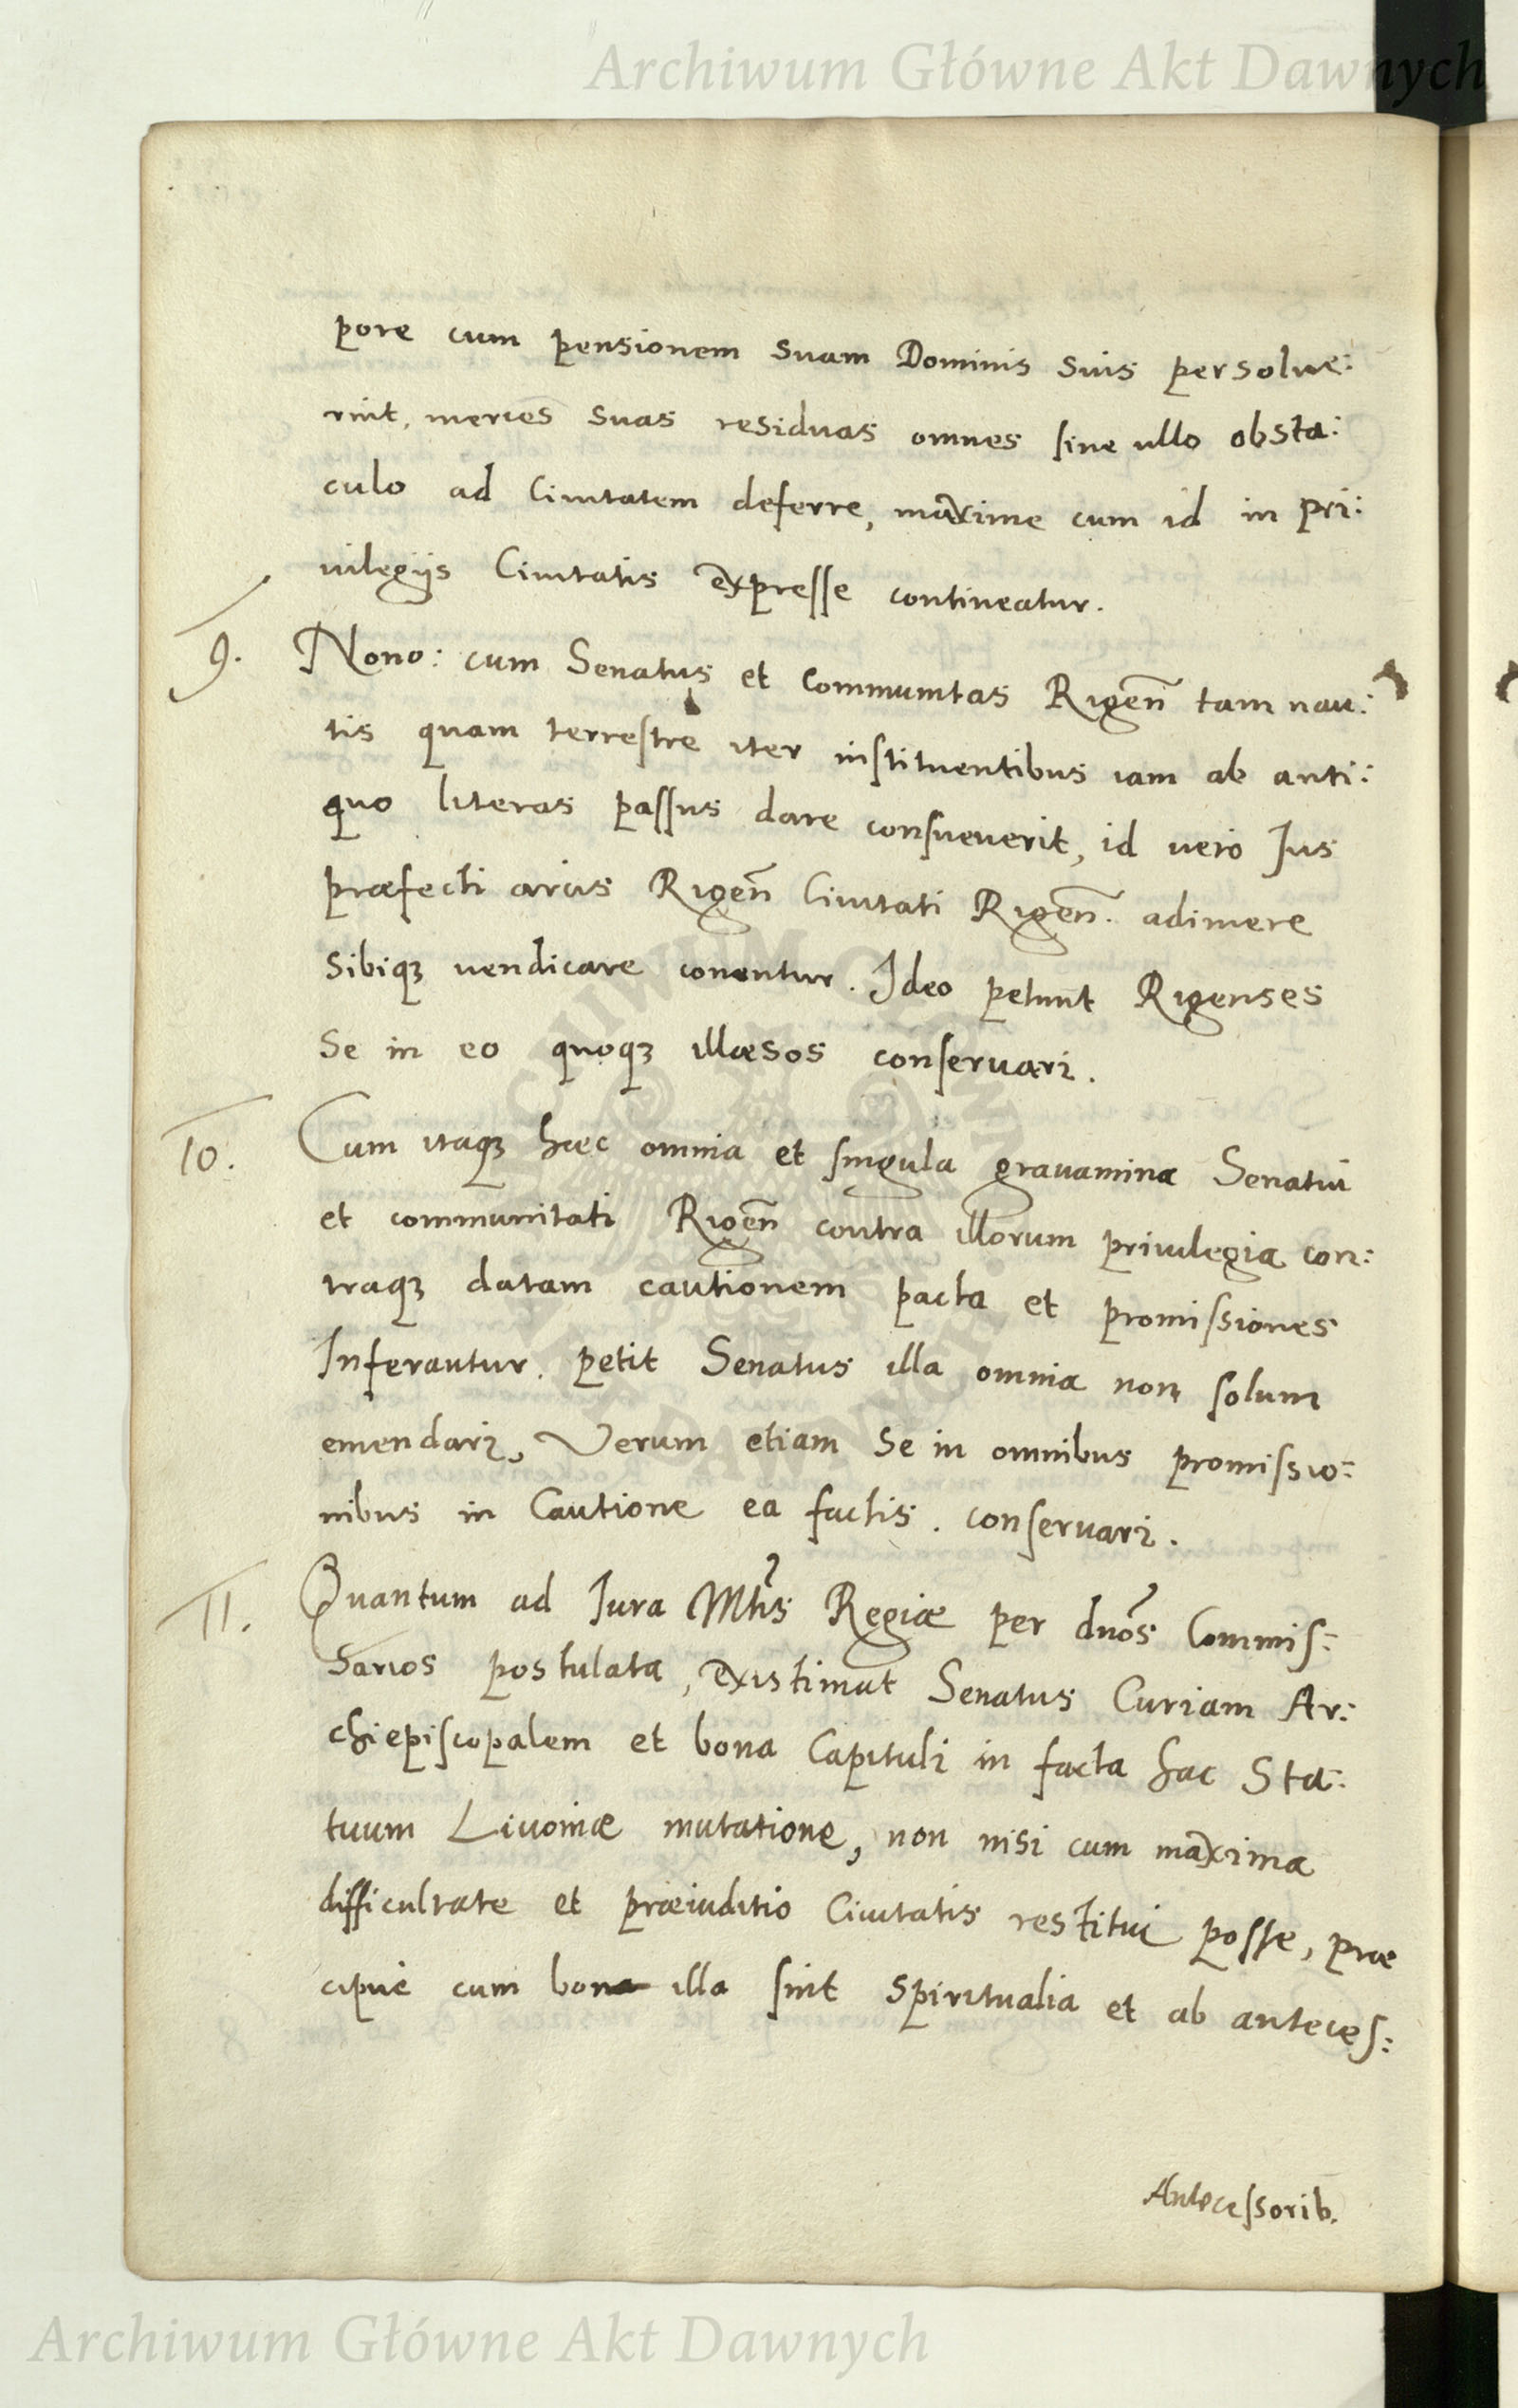 Archiwum Główne Akt Dawnych
pore cum pensionem suam Dominis suis persolue:
rint, merces suas residuas omnes sine ullo obsta:
culo ad Ciuitatem deferre, maxime cum id in pri:
uilegijs Ciuitatis expresse contineatur.
9. Nono: cum Senatus et Communitas Rigen̄ tam nau:
tis quam terrestre iter instituentibus iam ab anti:
quo literas passus dare consueuerit, id vero Jus
præfecti arcis Rigen̄ Ciuitati Rigen̄. adimere
sibiqȝ uendicare conentur. Ideo petunt Rigenses
se in eo quoqȝ illæsos conseruari.
10. Cum itaqȝ hæc omnia et singula grauamina Senatui
et communitati Rigen̄ contra illorum priuilegia con:
traqȝ datam cautionem pacta et promissiones
Inferantur. petit Senatus illa omnia non solum
emendari, Verum etiam se in omnibus promissio:
nibus in Cautione ea factis. conseruari.
11. Quantum ad Jura Mtis Regiæ per dnos Commis:
sarios postulata, existimat Senatus Curiam Ar:
chiepiscopalem et bona Capituli in facta hac Sta:
tuum Liuoniæ mutatione, non nisi cum maxima
difficultate et præiuditio Ciuitatis restitui posse, præ
cipue cum bona illa sint spiritualia et ab anteces:
Antecessorib.
Archiwum Główne Akt Dawnych